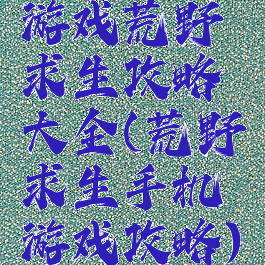 游戏荒野
求生攻略
大全(荒野
求生手机
游戏攻略)